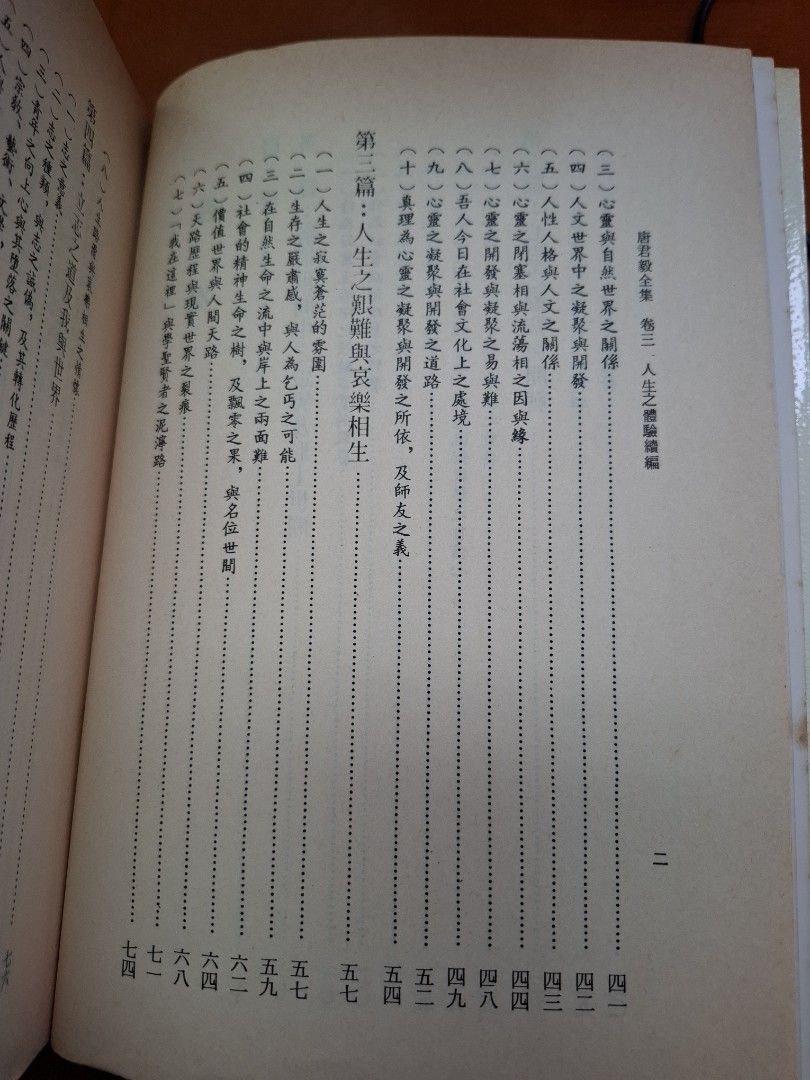 唐君毅全集 卷三 人生之體驗續編
二
（三）心靈與自然世界之關係……四一
（四）人文世界中之凝聚與開發……四二
（五）人性人格與人文之關係……四三
（六）心靈之閉塞相與流蕩相之因與緣……四四
（七）心靈之開發與凝聚之易與難……四八
（八）吾人今日在社會文化上之處境……四九
（九）心靈之凝聚與開發之道路……五二
（十）真理為心靈之凝聚與開發之所依，及師友之義……五四
第三篇：人生之艱難與哀樂相生……五七
（一）人生之寂寞蒼茫的雰圍……五七
（二）生存之嚴肅感，與人為乞丐之可能……五九
（三）在自然生命之流中與岸上之兩面難……六二
（四）社會的精神生命之樹，及飄零之果，與名位世間……六四
（五）價值世界與人間天路……六八
（六）天路歷程與現實世界之裂痕……七一
（七）「我在這裡」與學聖賢者之泥濘路……七四
（八）哀樂相生之情懷……七六
第四篇：立志之道及我與世界
（一）志之意義
（二）志之種類，與志之偽，及其轉化歷程
（三）青年之向上心與其墮落之關鍵
（四）宗教、藝術、文學，
（五）